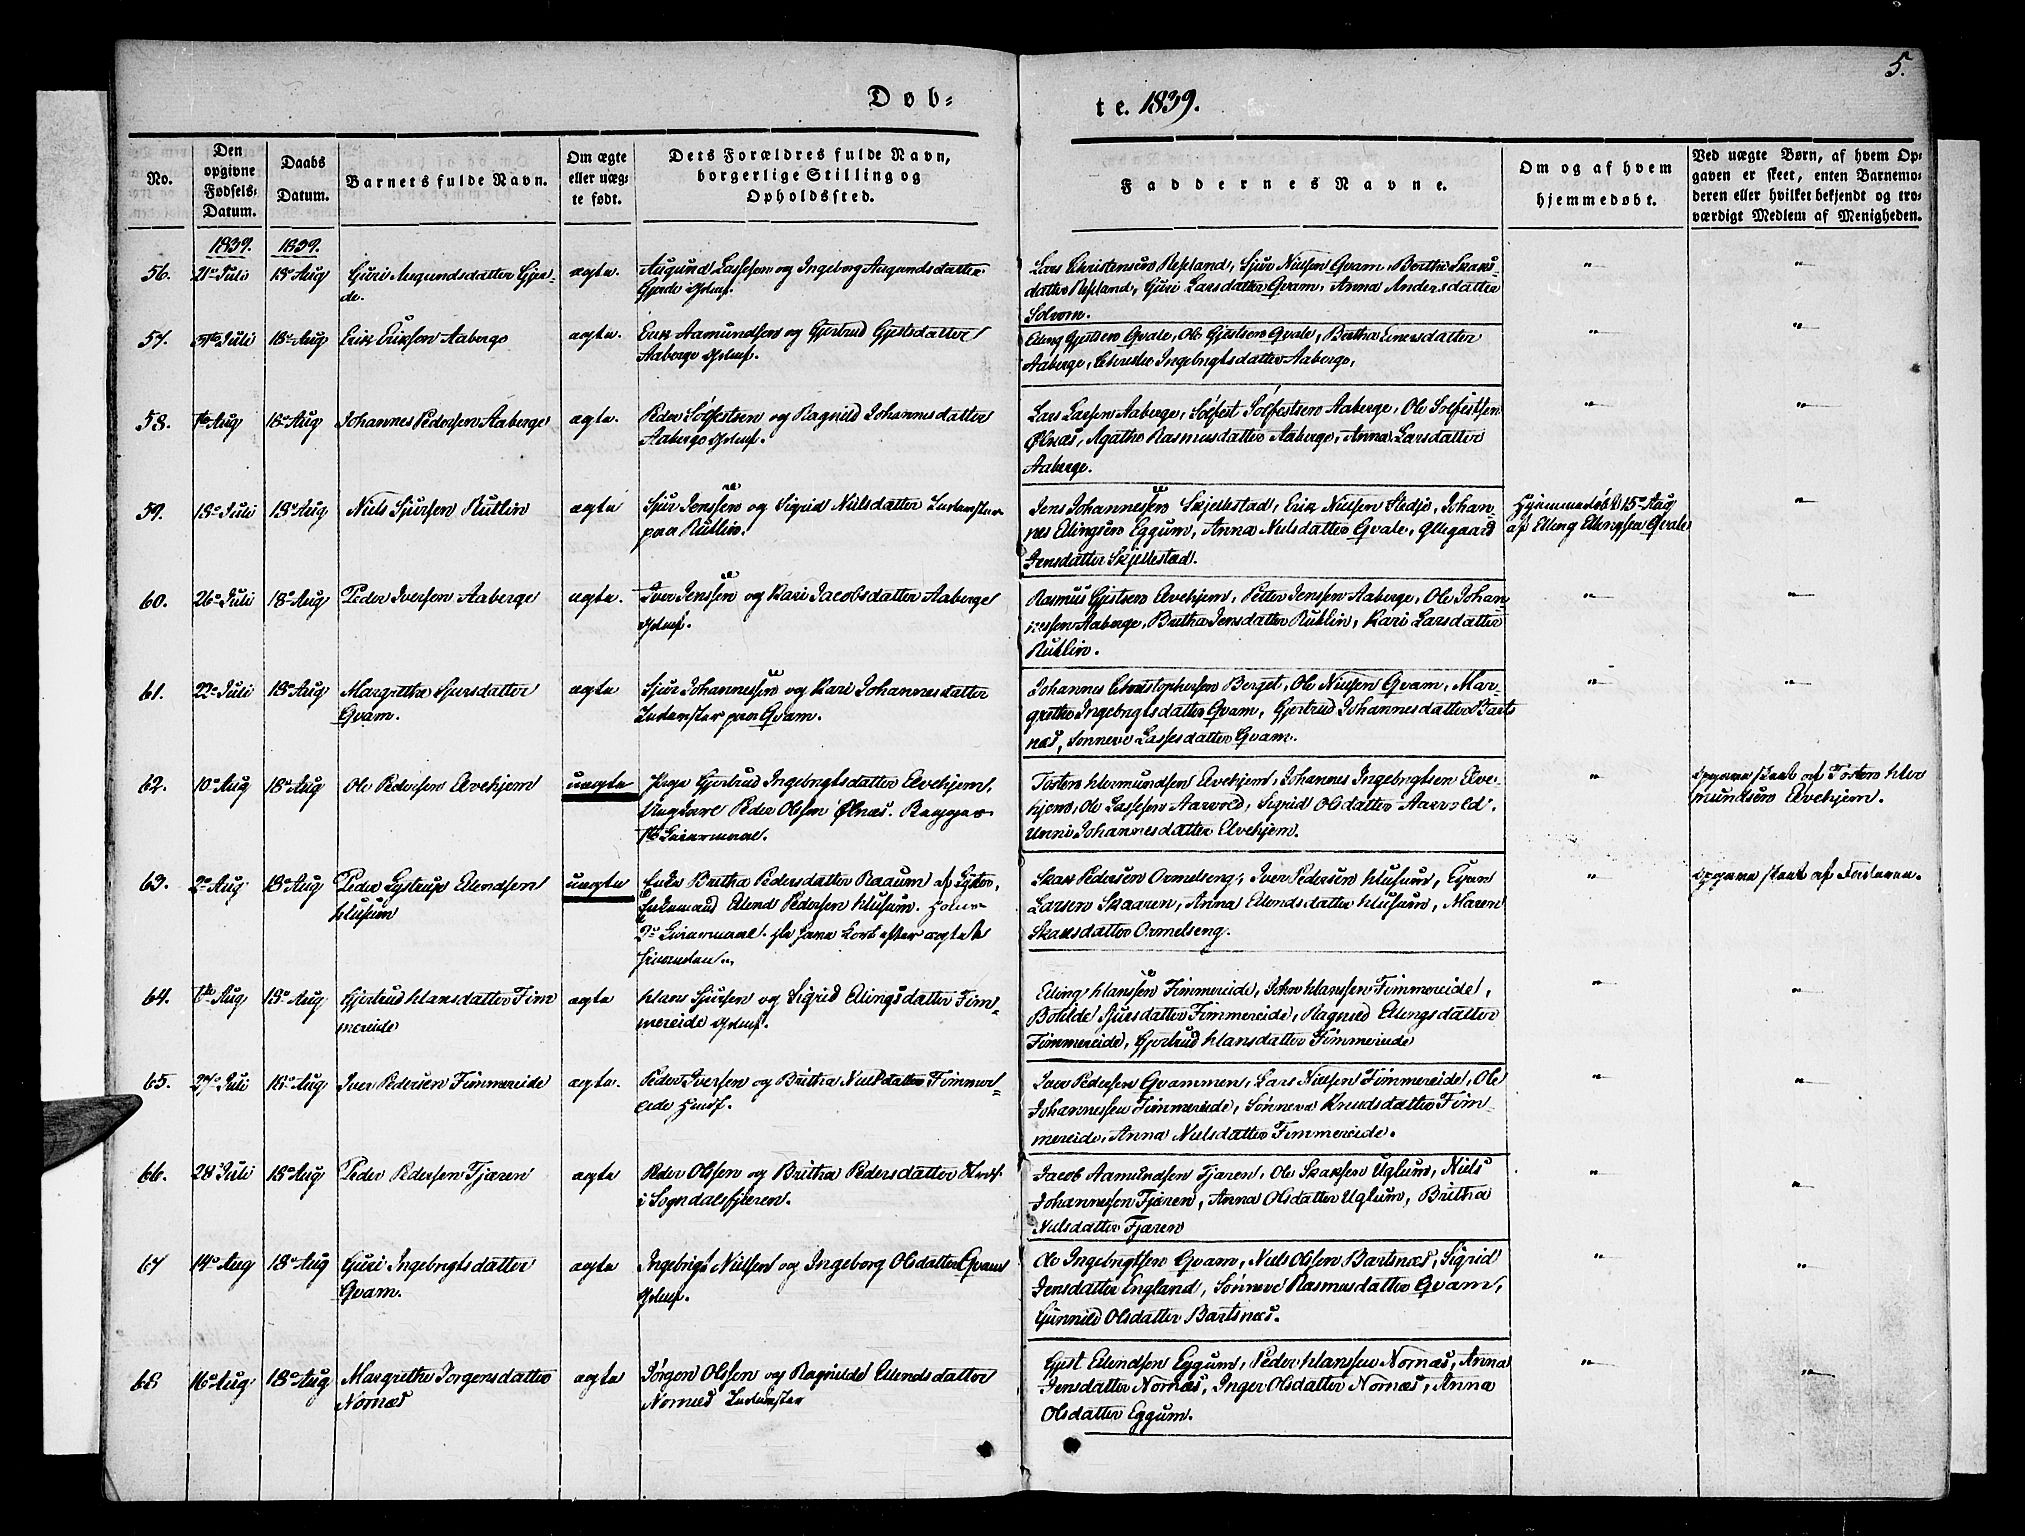 5.
Døb-
te. 1839.
No.
Den opgivne Fødsels-Datum.
Daabs Datum.
Barnets fulde Navn.
Om ægte eller uæg-te født.
Dets Forældres fulde Navn, borgerlige Stilling og Opholdssted.
Faddernes Navne.
Om og af hvem hjemmedøbt.
Ved uægte Børn, af hvem Op-gaven er skeet, enten Barnemo-deren eller hvilket bekjendt og tro-værdigt Medlem af Menigheden.
1839. 1839.
56. 21 Juli 18 Aug Guri Augundsdatter Gjer-
de.
ægte. Augund Lassesen og Ingeborg Augundsdatter
Gjerde
Lars Christensen Nesland, Sjur Nielsen Qvam, Bertha Skaks-
datter Nesland, Guri Larsdatter Qvam, Anna Andersdatter
Solvorn.
57. Juli 18 Aug Erik Eriksen Aaberge
ægte. Erik Aamundsen og Gjertrud Gjestsdatter
Aaberge
Elling Gjestsen Qvale, Ole Gjestsen Qvale, Bertha
Aaberge, Ingebrigtsdatter Aaberge,
58. Aug 18 Aug Johannes Pedersen Aaberge
ægte. Peder Solfestsen og Ragnild Johannesdatter
Aaberge
Lars Larsen Aaberge, Solfest Solfestsen Aaberge, Ole Solfestsen
Ølnæs, Agathe Rasmusdatter Aaberge, Anna Larsdatter
Aaberge.
59. 18 Juli 18 Aug Niels Sjursen Rutlin
ægte Sjur Jenssen og Sigrid Nielsdatter
paa Rutlin.
Jens Johannessen Skjellestad, Erik Nielsen Stedje, Johan-
nes Ellingsen Eggum, Anna Nielsdatter Qvale, Ollegaard
Jensdatter Skjellestad.
Hjemmedøbt 15 Aug
af Elling Ellingsen Qvale
60. 26 Juli 18 Aug Peder Iversen Aaberge
ægte. Iver Jenssen og Kari Jacobsdatter Aaberge
Rasmus Gjestsen Elvehjem, Petter Jensen Aaberge, Ole Johan-
nessen Aaberge, Britha Jensdatter Rutlin, Kari Larsdatter
Rutlin.
61. 22 Juli 18 Aug Margretha Sjursdatter
Qvam.
ægte Sjur Johannessen og Kari Johannesdatter
paa Qvam.
Johannes Christophersen Berget, Ole Nielsen Qvam, Mar-
grethe Ingebrigtsdatter Qvam, Gjertrud Johannesdatter Barts
næs, Sønneve Lassesdatter Qvam.
62. 10 Aug 18 Aug Ole Pedersen Elvehjem
uægte Pige Gjertrud Ingebrigtsdatter Elvehjem,
Ungkarl Peder Olsen Ølnæs. Begges
1ste Leiermaal.
Tosten Hermundsen Elvehjem, Johannes Ingebrigtsen Elve-
hjem, Ole Lassesen Aarvold, Sigrid Olsdatter Aarvold.
Unni Johannesdatter Elvehjem.
Opgaven skeet af Tosten Her
mundsen Elvehjem.
63. 2 Aug 18 Aug Peder Lystrup Erlendsen
Husum
uægte Enke Britha Pedersdatter Raaum af
Enkemand Erlend Pedersen Husum.
2 Leiermaal.
Skak Pedersen Ormelseng, Iver Pedersen Husum,
Larsen Skaaren, Anna Erlendsdatter Husum, Maren
Skaksdatter Ormelseng.
Opgaven skeet af Forældrene.
64. Aug 18 Aug Gjertrud Hansdatter Fim
mereide
ægte Hans Sjursen og Sigrid Ellingsdatter Fim-
mereide
Elling Hanssen Fimmereide, John Hanssen Fimmereide,
Bothilde Sjursdatter Fimmereide, Ragnild Ellingsdatter
Fimmereide, Gjertrud Hansdatter Fimmereide
65. 27 Juli 18 Aug Iver Pedersen Fimmereide
ægte. Peder Iversen og Britha Nielsdatter Fimmer-
eide
Pedersen Qvammen, Lars Nielsen Fimmereide, Ole
Johannessen Fimmereide, Sønneva Knudsdatter Fim-
mereide, Anna Nielsdatter Fimmereide.
66. 28 Juli 18 Aug Peder Pedersen Fjæren
ægte Peder Olsen og Britha Pedersdatter
i Sogndalsfjæren.
Jacob Aamundsen Fjæren, Ole Skaksen Uglum, Niels
Johannesen Fjæren, Anna Olsdatter Uglum, Britha
Nielsdatter Fjæren
67 14 Aug 18 Aug Guri Ingebrigtsdatter
Qvam.
ægte Ingebrigt Nielsen og Ingeborg Olsdatter Qvam
Ole Ingebrigtsen Qvam, Niels Olsen Bartsnæs, Sigrid
Jensdatter England, Sønneve Rasmusdatter Qvam,
Gunnild Olsdatter Bartsnæs.
68 16 Aug 18 Aug Margrethe Jørgensdatter
Nornæs
ægte Jørgen Olsen og Ragnilde Erlendsdatter
Nornæs
Gjest Erlendsen Eggum, Peder Hanssen Nornæs, Anna
Jensdatter Nornæs, Inger Olsdatter Nornæs, Anna
Olsdatter Eggum.